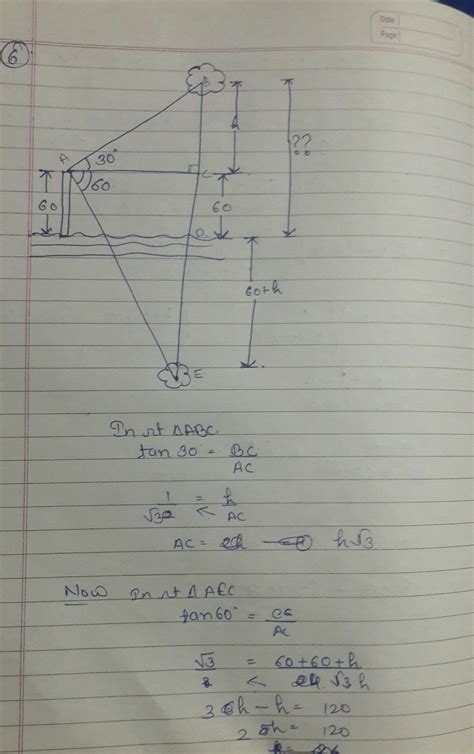 Date
Page
6
B
A
30°
h
??
60
C
60
60
D
60+h
E
In rt ΔABC.
tan 30 = BC
AC
1 = h
√3 AC
AC = h√3
Now In rt ΔAEC
tan60° = CE
AC
√3 = 60+60+h
√3h
3h-h = 120
2h = 120